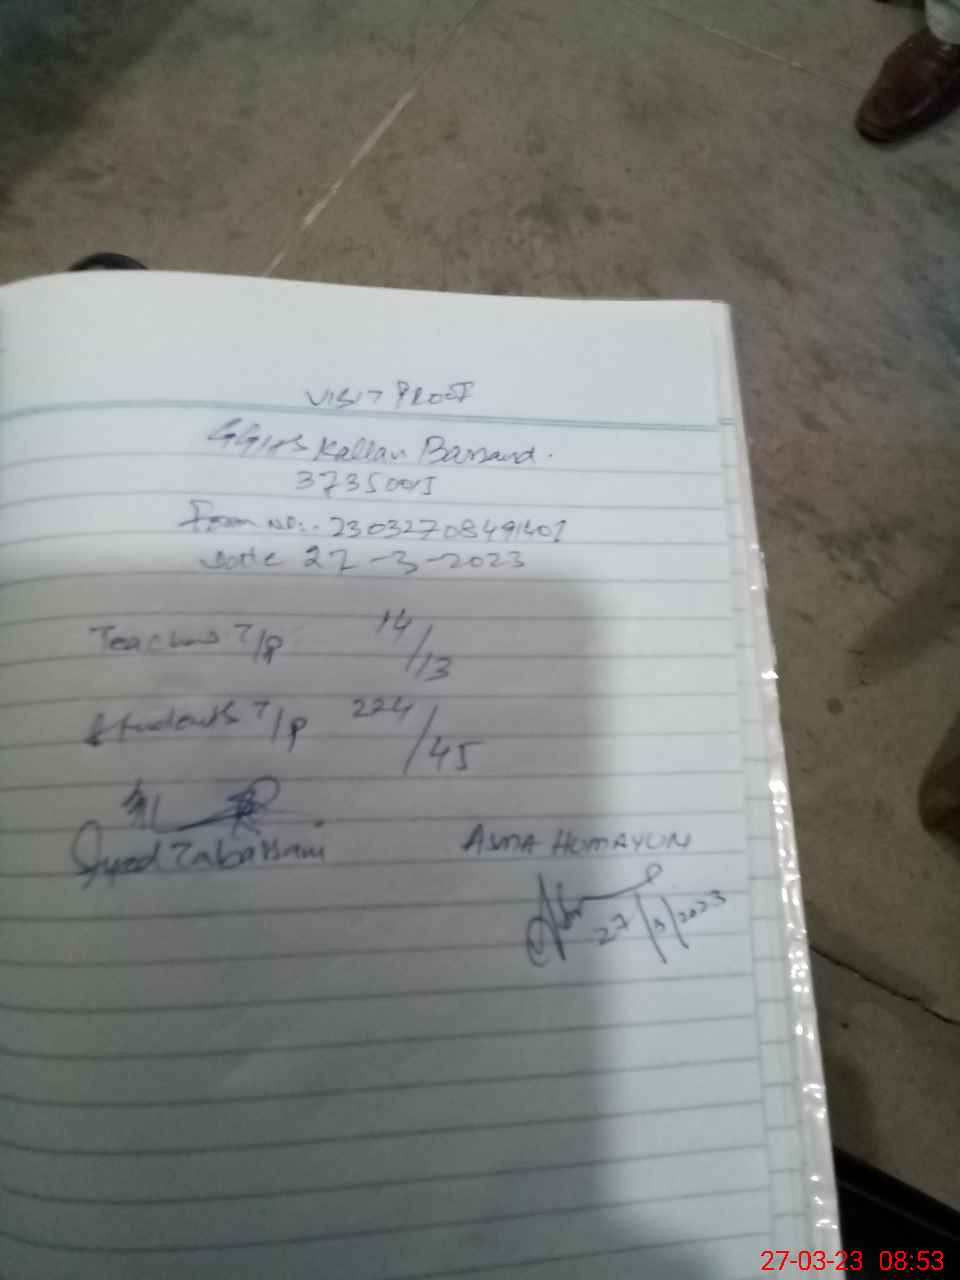 VISIT PROOF
GGHS Kallan Bassand.
37350015
Form NO:. 23032708491401
Date 27-3-2023
Teachers T/P 14/13
Students T/P 224/45
Syed Tabassam
ASMA HUMAYUN
27/3/2023
27-03-23 08:53